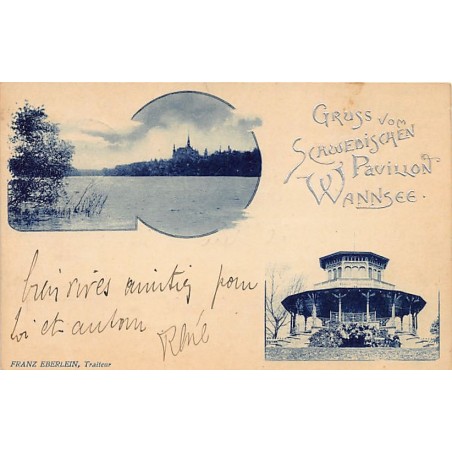 GRUSS VOM
SCHWEDISCHEN
PAVILLON
WANNSEE.
bien vives amitiés pour
toi et autour
René
FRANZ EBERLEIN, Traiteur